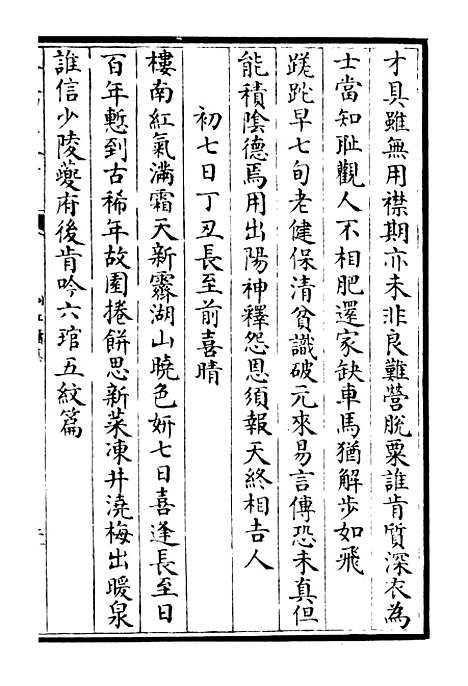 才具雖無用襟期亦未非良難營脫粟誰肯質深衣為
士當知恥觀人不相肥還家缺車馬猶解步如飛
蹉跎早七旬老健保清貧識破元來易言傳恐未真但
能積陰德焉用出陽神釋怨恩須報天終相吉人
初七日丁丑長至前喜晴
樓南紅氣滿霜天新霽湖山曉色妍七日喜逢長至日
百年慙到古稀年故園捲餅思新菜凍井澆梅出暖泉
誰信少陵夔府後肯吟六琯五紋篇